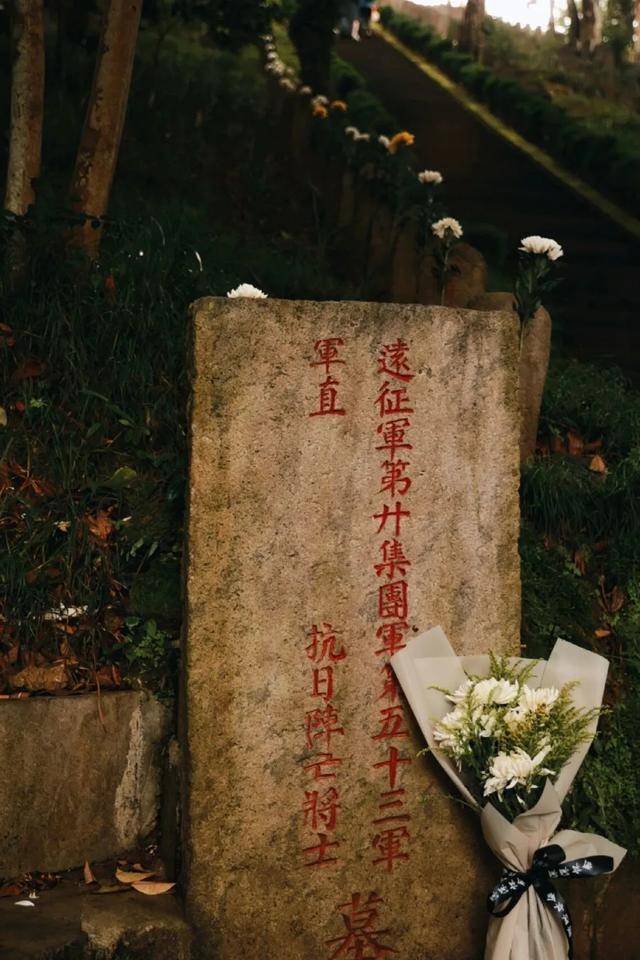 遠征軍第廿集團軍第五十三軍
軍直 抗日陣亡將士
墓